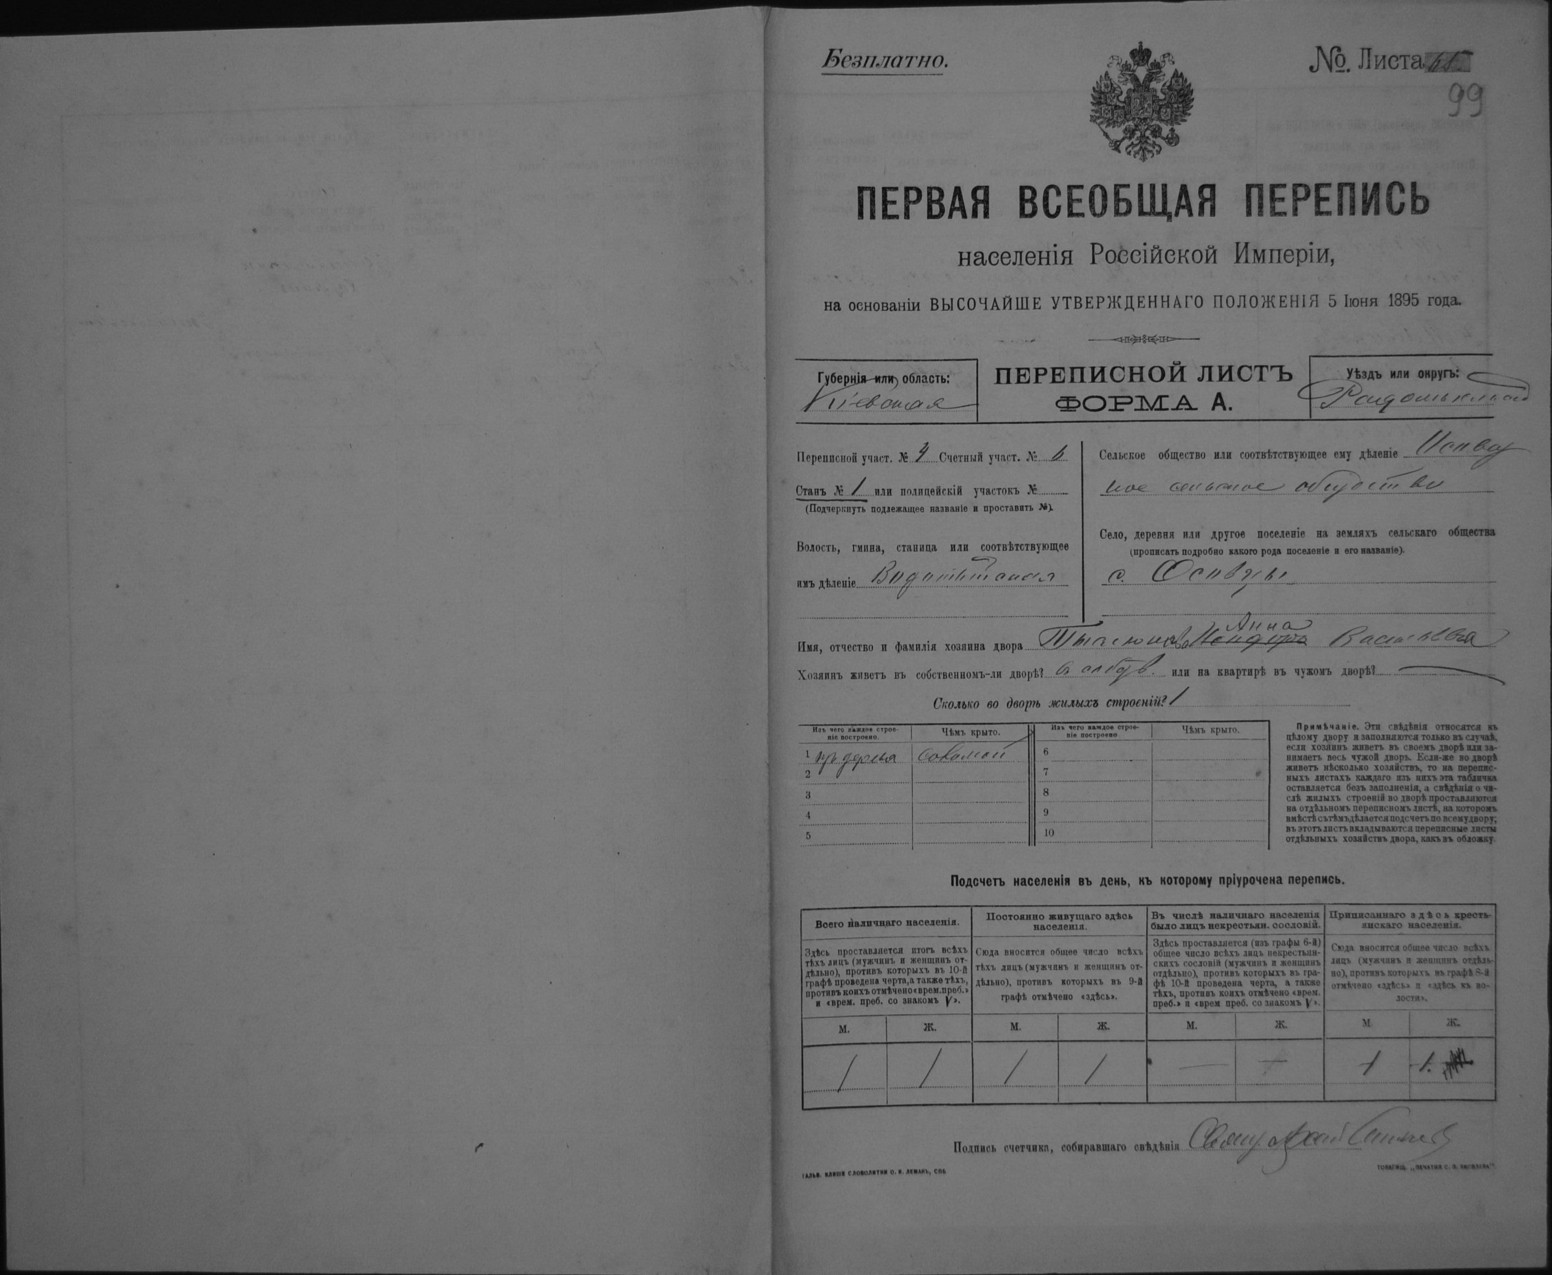 Безплатно.
№ Листа
99
ПЕРВАЯ ВСЕОБЩАЯ ПЕРЕПИСЬ
населенія Россійской Имперіи,
на основаніи ВЫСОЧАЙШЕ УТВЕРЖДЕННАГО ПОЛОЖЕНІЯ 5 Іюня 1895 года.
Губернія или область:
Кіевская
ПЕРЕПИСНОЙ ЛИСТЪ
ФОРМА А.
Уѣздъ или округъ:
Радомысльскій
Переписной участ. № 4 Счетный участ. № 6
Станъ № 1 или полицейскій участокъ №
(Подчеркнуть подлежащее названіе и проставить №).
Волость, гмина, станица или соотвѣтствующее
имъ дѣленіе
Сельское общество или соотвѣтствующее ему дѣленіе
ное сельское общество
Село, деревня или другое поселеніе на земляхъ сельскаго общества
(прописать подробно какого рода поселеніе и его названіе).
с.
Анна
Имя, отчество и фамилія хозяина двора
Хозяинъ живетъ въ собственномъ-ли дворѣ? или на квартирѣ въ чужомъ дворѣ?
Сколько во дворѣ жилыхъ строеній? 1
Изъ чего каждое строеніе построено.
Чѣмъ крыто.
Изъ чего каждое строеніе построено
Чѣмъ крыто.
1 изъ дерева соломой
2
3
4
5
6
7
8
9
10
Примѣчаніе. Эти свѣдѣнія относятся къ
цѣлому двору и заполняются только въ случаѣ,
если хозяинъ живетъ въ своемъ дворѣ или за-
нимаетъ весь чужой дворъ. Если-же во дворѣ
живетъ нѣсколько хозяйствъ, то на перепис-
ныхъ листахъ каждаго изъ нихъ эта табличка
оставляется безъ заполненія, а свѣдѣнія о чи-
слѣ жилыхъ строеній во дворѣ проставляются
на отдѣльномъ переписномъ листѣ, на которомъ
вмѣстѣ съ тѣмъ дѣлается подсчетъ по всему двору;
въ этотъ листъ вкладываются переписные листы
отдѣльныхъ хозяйствъ двора, какъ въ обложку.
Подсчетъ населенія въ день, къ которому пріурочена перепись.
Всего наличнаго населенія.
Здѣсь проставляется итогъ всѣхъ
тѣхъ лицъ (мужчинъ и женщинъ от-
дѣльно), противъ которыхъ въ 10-й
графѣ проведена черта, а также тѣхъ,
противъ коихъ отмѣчено «врем. преб.»
и «врем. преб. со знакомъ V».
Постоянно живущаго здѣсь
населенія.
Сюда вносится общее число всѣхъ
тѣхъ лицъ (мужчинъ и женщинъ от-
дѣльно), противъ которыхъ въ 9-й
графѣ отмѣчено «здѣсь».
Въ числѣ наличнаго населенія
было лицъ некрестьян. сословій.
Здѣсь проставляется (изъ графы 6-й)
общее число всѣхъ лицъ некрестьян-
скихъ сословій (мужчинъ и женщинъ
отдѣльно), противъ которыхъ въ гра-
фѣ 10-й проведена черта, а также
тѣхъ, противъ коихъ отмѣчено «врем.
преб.» и «врем преб. со знакомъ V».
Приписаннаго здѣсь кресть-
янскаго населенія.
Сюда вносится общее число всѣхъ
лицъ (мужчинъ и женщинъ отдѣль-
но), противъ которыхъ въ графѣ 8-й
отмѣчено «здѣсь» и «здѣсь къ во-
лости».
М. Ж. М. Ж. М. Ж. М. Ж.
1 1 1 1 — — 1 1.
Подпись счетчика, собиравшаго свѣдѣнія
ГАЛЬВ. КЛИШЕ СЛОВОЛИТНИ О. И. ЛЕМАНЪ, СПБ
ТОВАРИЩ. „ПЕЧАТНЯ С. П. ЯКОВЛЕВА“